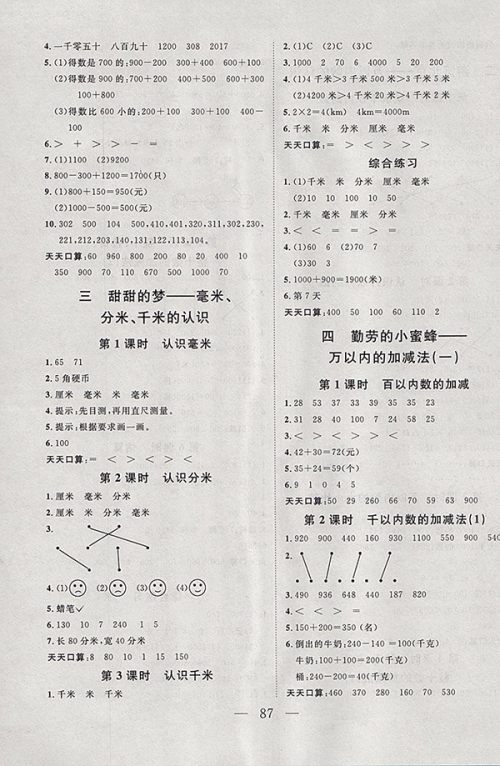 4. 一千零五十 八百九十 1200 308 2017
5. (1)得数是 700 的:900-200 300+400 600+100
(2)得数是 900 的:700+200 400+500 600+300
100+800
(3)得数比 600 小的:200+100 300+100 400-
100
6. > + > > - =
7. (1)1100 (2)9200
8. 800-300+1200=1700(只)
9. (1)800+150=950(元)
(2)1000-500=500(元)
10. 302 500 104 500,410,401,320,311,302,230,
221,212,203,140,131,122,113,104。
天天口算:60 960 800 200 80 20 400 10
350 900 70 110 670 320 1000 40
三 甜甜的梦——毫米、
分米、千米的认识
第 1 课时 认识毫米
1. 65 71
2. 5 角硬币
3. 厘米 毫米 米 毫米
4. 提示:先目测,再用直尺测量。
5. 提示:根据要求画一画。
6. 100
天天口算:= < > < > <
第 2 课时 认识分米
1. 厘米 毫米 分米
2. 分米 毫米 厘米 米
3.
4. (1) (2) (3) (4)
5. 蜡笔✓
6. 130 10 7 240 1 5
7. 长 80 分米,宽 40 分米
天天口算:8 80 10 1 15 150
第 3 课时 认识千米
1. 千米 米 千米 千米
2. (1)C (2)C (3)C
3. 1000 2 70 6 4000 5 20 3
4. (1)4 千米>3 千米 500 米>3 千米>5 米
(2)4200 米>4 千米 20 米>4 千米>2 千米
5. 2×2=4(km) 4km=4000m
6. 千米 米 分米 厘米 毫米
天天口算:= > < > > >
综合练习
1. (1)千米 米 分米 厘米 毫米
(2)10 10 100 10 50
2. 千米 毫米 厘米 分米
3. < < = = > =
4. (1)60 (2)6 70 (2)7
(3)30 3
5. 1000+900=1900(米)
6. 第 7 天
天天口算:400 50 100 60 110 2
四 勤劳的小蜜蜂——
万以内的加减法(一)
第 1 课时 百以内数的加减
1. 28 53 37 33 39 35 23
2. 31 28 40 100 7 24 58 25
3. < > < > > >
4. 42+30=72(元)
5. 54-25=29(元)
6. 9 1 0 4 5
天天口算:50 29 260 66 70 59 63 900
第 2 课时 千以内数的加减法(1)
1. 920 900 440 160 190 1100 550 900 540
2.
3. 490 936 488 640 440 187 820
4. < < < >
5. 150+200=350(名)
6. 倒出的牛奶:240-140=100(千克)
牛奶:100+100=200(千克)
桶:240-200=40(千克)
天天口算:460 370 280 160 70 510 630
87